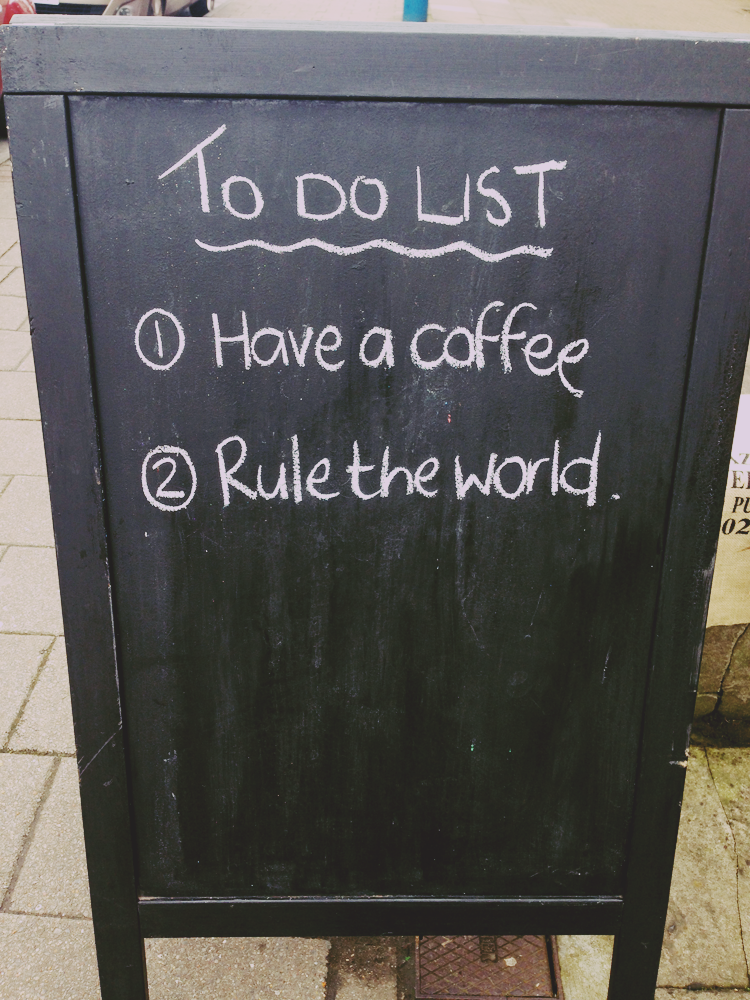 To DO LIST
① Have a coffee
② Rule the world.
PU
02